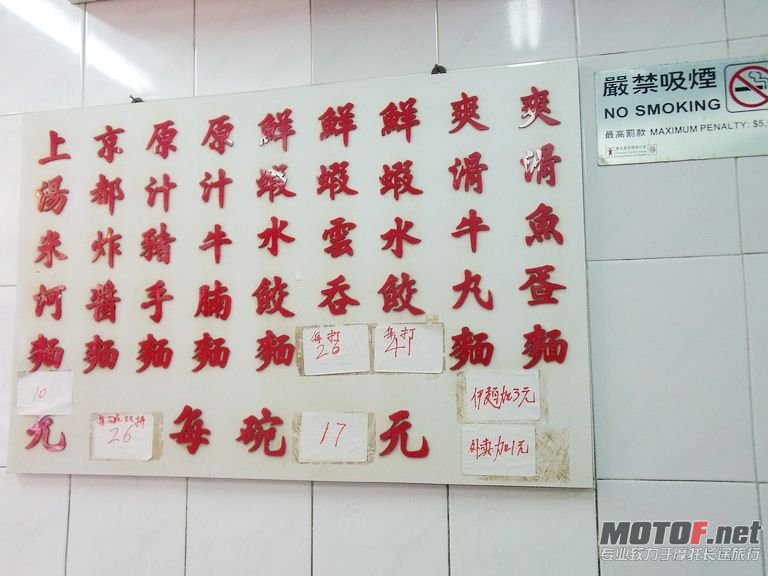 爽滑魚蛋麵
爽滑牛丸麵
鮮蝦水餃
每打
41
鮮蝦雲吞
每打
26
鮮蝦水餃麵
原汁牛腩麵
原汁豬手麵
京都炸醬麵
上湯米河麵
10
元
26
每碗
17
元
伊麵加3元
外卖加1元
嚴禁吸煙
NO SMOKING
最高罰款 MAXIMUM PENALTY: $5,
MOTOF.net
专业致力于摩托长途旅行